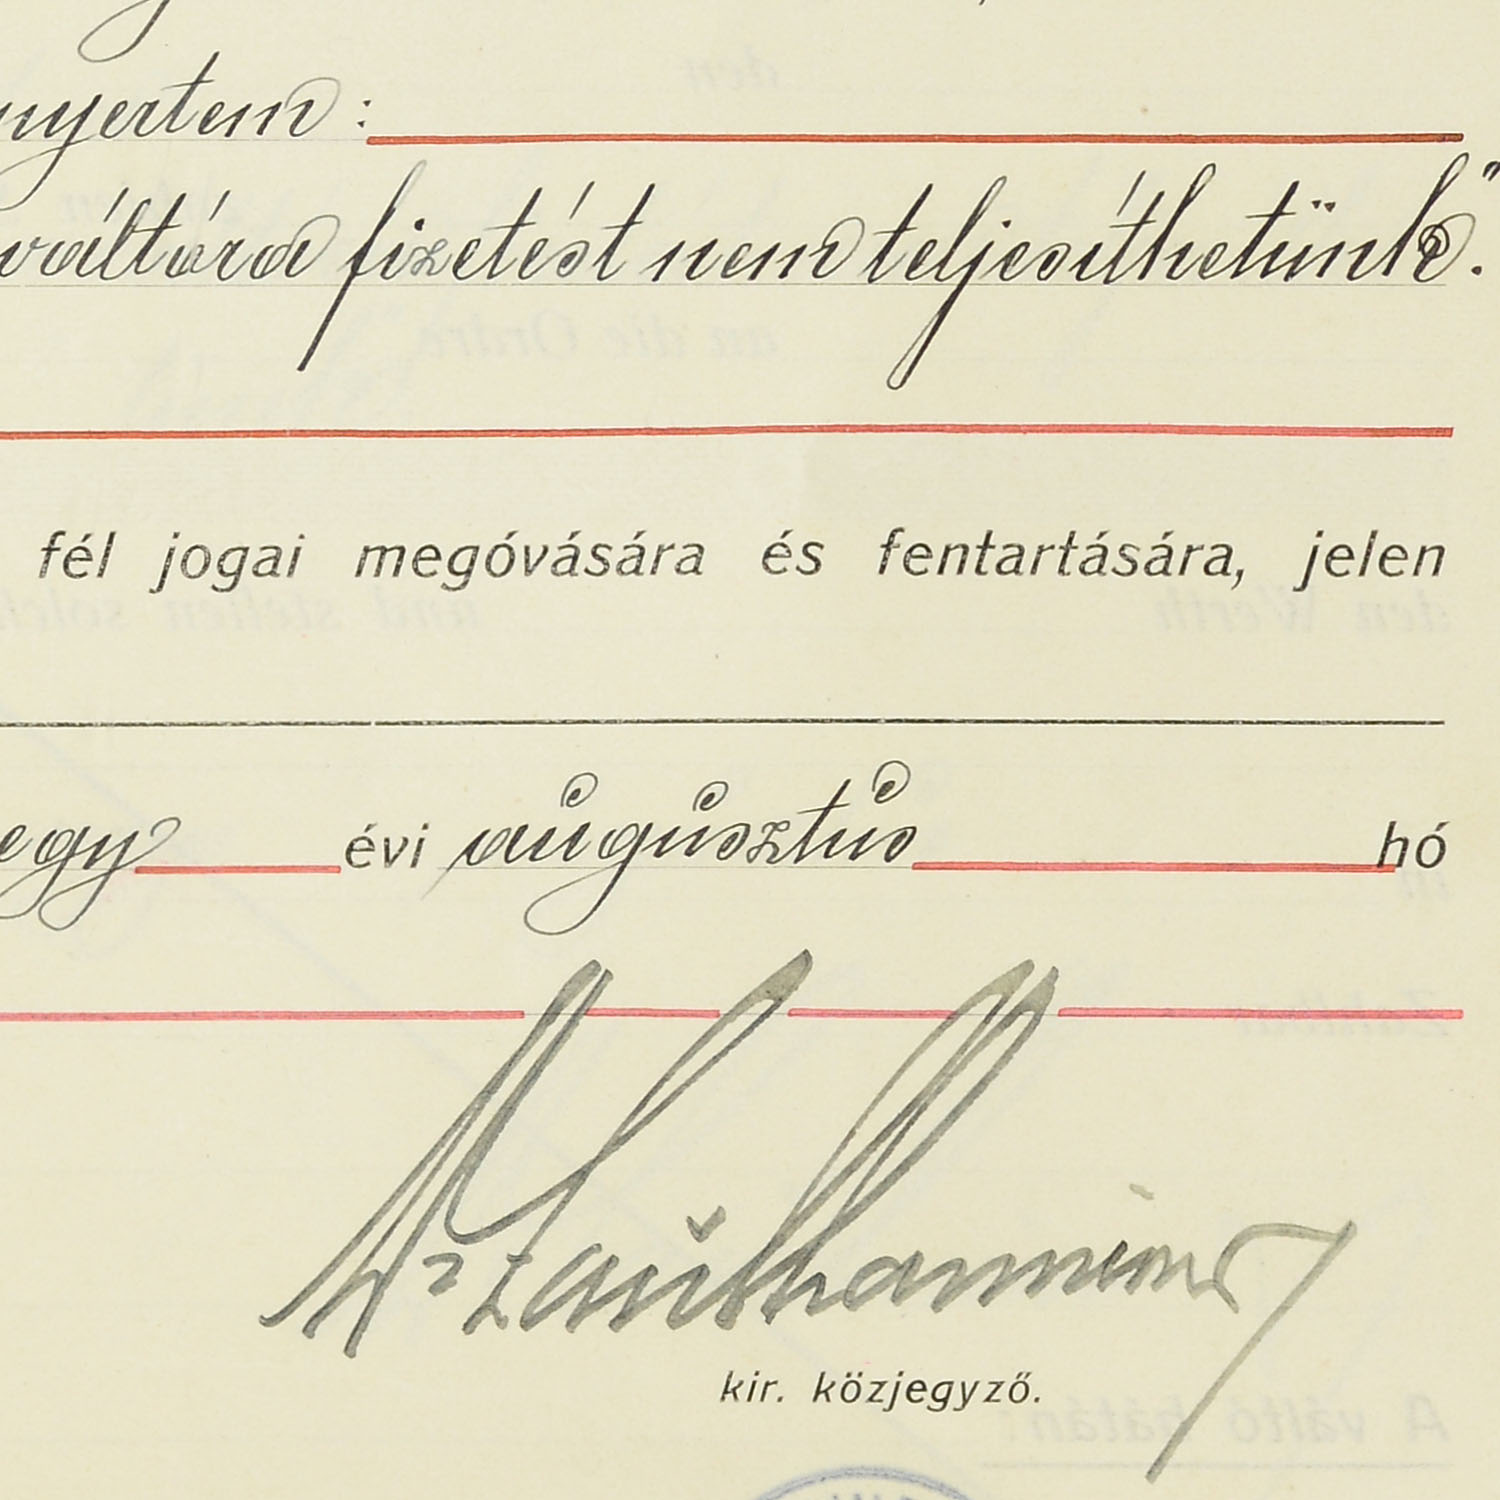 nyertem :
váltóra fizetést nem teljesíthetünk."
fél jogai megóvására és fentartására, jelen
egy évi augusztus hó
kir. közjegyző.